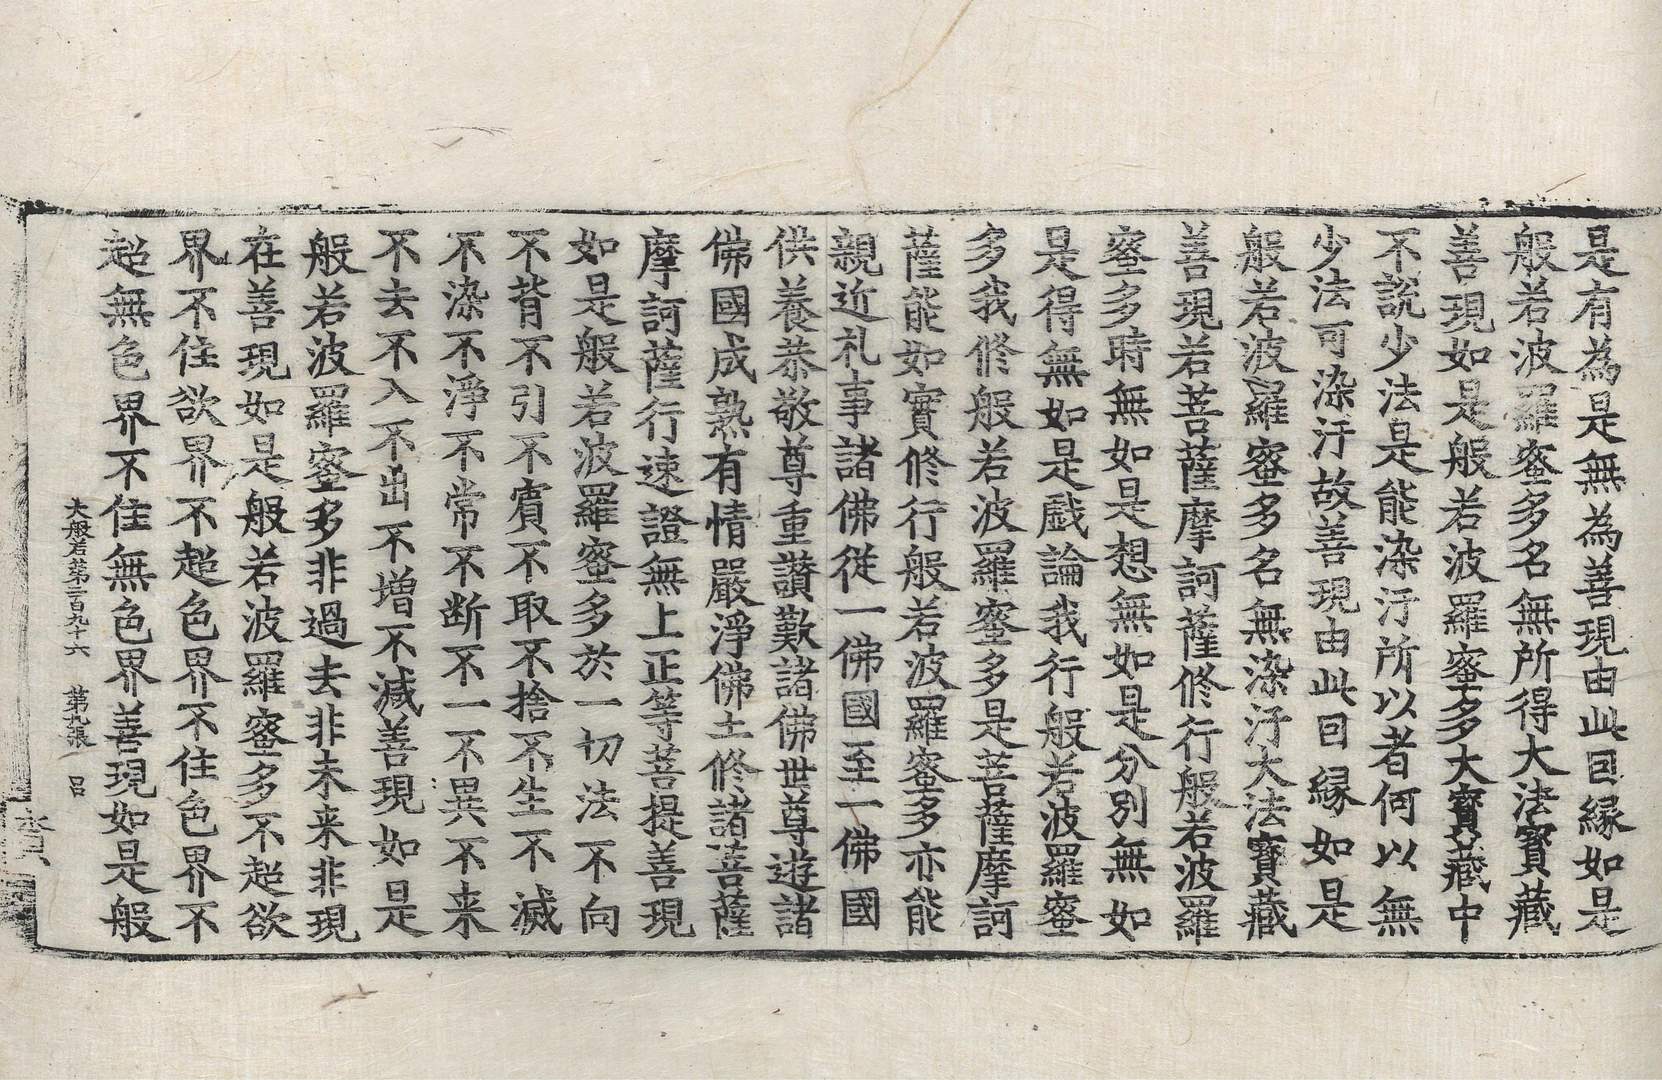 是有為是無為善現由此回緣如是
般若波羅蜜多名無所得大法寶藏
善現如是般若波羅蜜多大寶藏中
不說少法是能染汙所以者何以無
少法可染汙故善現由此回緣如是
般若波羅蜜多名無染汙大法寶藏
善現若菩薩摩訶薩修行般若波羅
蜜多時無如是想無如是分別無如
是得無如是戲論我行般若波羅蜜
多我修般若波羅蜜多是菩薩摩訶
薩能如實修行般若波羅蜜多亦能
親近礼事諸佛從一佛國至一佛國
供養恭敬尊重讚歎諸佛世尊遊諸
佛國成熟有情嚴淨佛土修諸菩薩
摩訶薩行速證無上正等菩提善現
如是般若波羅蜜多於一切法不向
不背不引不賓不取不捨不生不滅
不染不淨不常不断不一不異不来
不去不入不出不增不減善現如是
般若波羅蜜多非過去非未来非現
在善現如是般若波羅蜜多不超欲
界不住欲界不超色界不住色界不
超無色界不住無色界善現如是般
大般若第二百九十六 第九張 呂